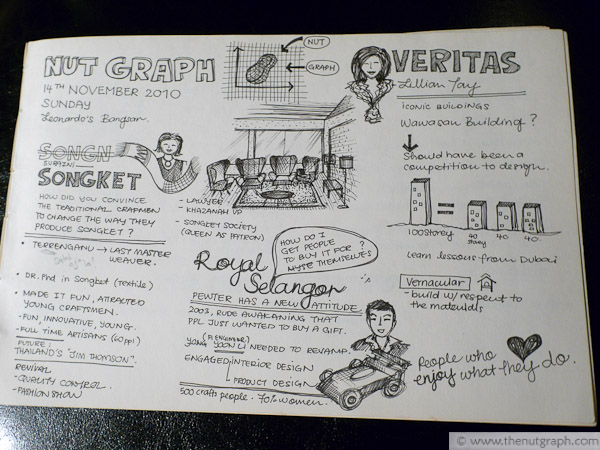 NUT GRAPH
14TH NOVEMBER 2010
SUNDAY
Leonardo's Bangsar.
NUT
GRAPH
SONGN
SONGKET
HOW DID YOU CONVINCE
THE TRADITIONAL CRAFMEN
TO CHANGE THE WAY THEY
PRODUCE SONGKET?
• TERRENGANU → LAST MASTER
WEAVER.
• DR. Phd in Songket (textile)
• MADE IT FUN, ATTRACTED
YOUNG CRAFTSMEN.
-FUN, INNOVATIVE, YOUNG.
- FULL TIME ARTISANS (60 ppl)
FUTURE:
THAILAND'S "JIM THOMSON".
REVIVAL
-QUALITY CONTROL.
-FASHION SHOW
- LAWYER
- KHAZANAH VP
- SONGKET SOCIETY
(QUEEN AS PATRON)
HOW DO I
GET PEOPLE
TO BUY IT FOR
THEMSELVES
?
Royal
Selangor
PEWTER HAS A NEW ATTITUDE.
2003, RUDE AWAKENING THAT
PPL JUST WANTED TO BUY A GIFT.
YONG YOON LI NEEDED TO REVAMP.
ENGAGED INTERIOR DESIGN
PRODUCT DESIGN
500 crafts people. 70% women.
VERITAS
Lillian Tay
ICONIC BUILDINGS
Wawasan Building?
Should have been a
competition to design.
100 Storey
40 storey
40
40.
Learn lessons from Dubai
Vernacular
- build w/ respect to
the materials
People who
enjoy what they do.
© www.thenutgraph.com